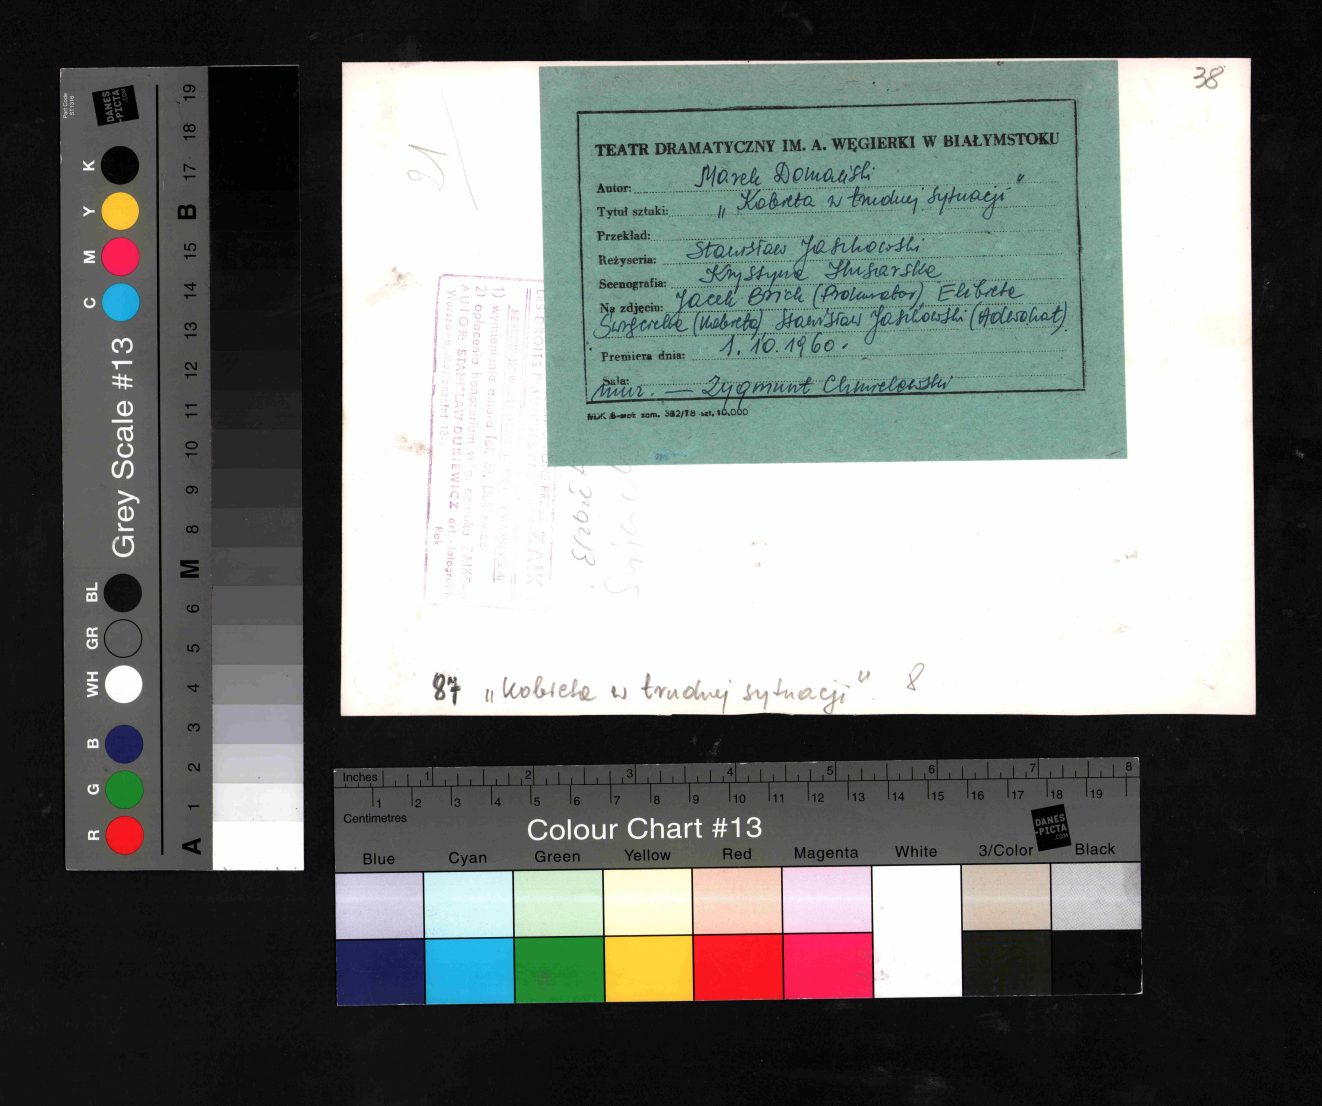 38
16
TEATR DRAMATYCZNY IM. A. WĘGIERKI W BIAŁYMSTOKU
Autor: Marek Domański
Tytuł sztuki: „Kobieta w trudnej sytuacji"
Przekład:
Reżyseria: Stanisław Jaszkowski
Scenografia: Krystyna Slusarska
Na zdjęciu: Jacek (Prokurator), Elżbieta
(Kobieta) Stanisław Jaszkowski (Adwokat)
Premiera dnia: 1.10.1960.
Sala:
muz. — Zygmunt Chmielewski
zam. 382/78 szt. 10.000
1) wymienienie autora fot. St.
2) opłacenia honorarium w/g cennika ZAIKS-u
AUTOR: STANISŁAW DUKIEWICZ art. fotografik
Rok
87 „Kobieta w trudnej sytuacji" 8
Part Code
ST1316
DANES
-PICTA
.COM
Grey Scale #13
K Y M C
BL GR WH
B G R
A 1 2 3 4 5 6 M 8 9 10 11 12 13 14 15 B 17 18 19
Inches 1 2 3 4 5 6 7 8
1 2 3 4 5 6 7 8 9 10 11 12 13 14 15 16 17 18 19
Centimetres
Colour Chart #13
DANES
-PICTA
.COM
Blue Cyan Green Yellow Red Magenta White 3/Color Black